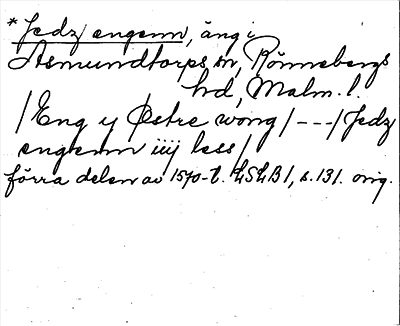 * Jedz engenn, äng i
Asmundtorps sn, Rönnebergs
hd, Malm. l.
/Eng y Østre wong/ --- /Jedz
engenn iiij less/
förra delen av 1570-t. LSLB1, s. 131. orig.